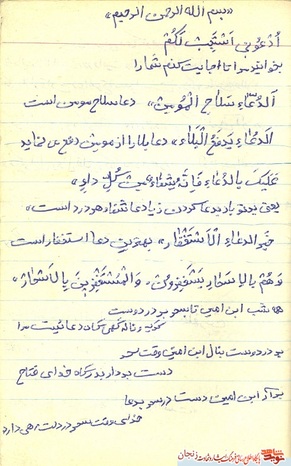 «بسم الله الرحمن الرحیم»
اُدْعُونِی اَسْتَجِبْ لَکُمْ
بخوانید مرا تا اجابت کنم شما را
اَلدُّعاءُ سَلاحُ الْمُؤمِنِ» دعا سلاح مومن است
اَلدُعاءِ یَدفَعُ الْبَلاءَ» دعا بلا را از مومن دفع می نماید
عَلَیکَ بِالدُعاءِ فَاِنَّهُ شِفاءٌ مِنْ کُلِ داءٍ»
یعنی بر تو باد بدعا کردن زیرا دعا شفاء هر درد است»
خَیرُ الدعاءِ اَلاِسْتِغْفار» بهترین دعا استغفار است
وَ هُمْ بِالاَسحارِ یَستَغفِرونَ» وَالْمُسْتَغْفِرینَ بِالاَسْحارِ»
هر شب ابن امین تا سحر بر در دوست
بر در دوست بنال ابن امین وقت سحر
دست بردار بدرگاه خدای فتاح
بردار ابن امین دست در سحر بدعا